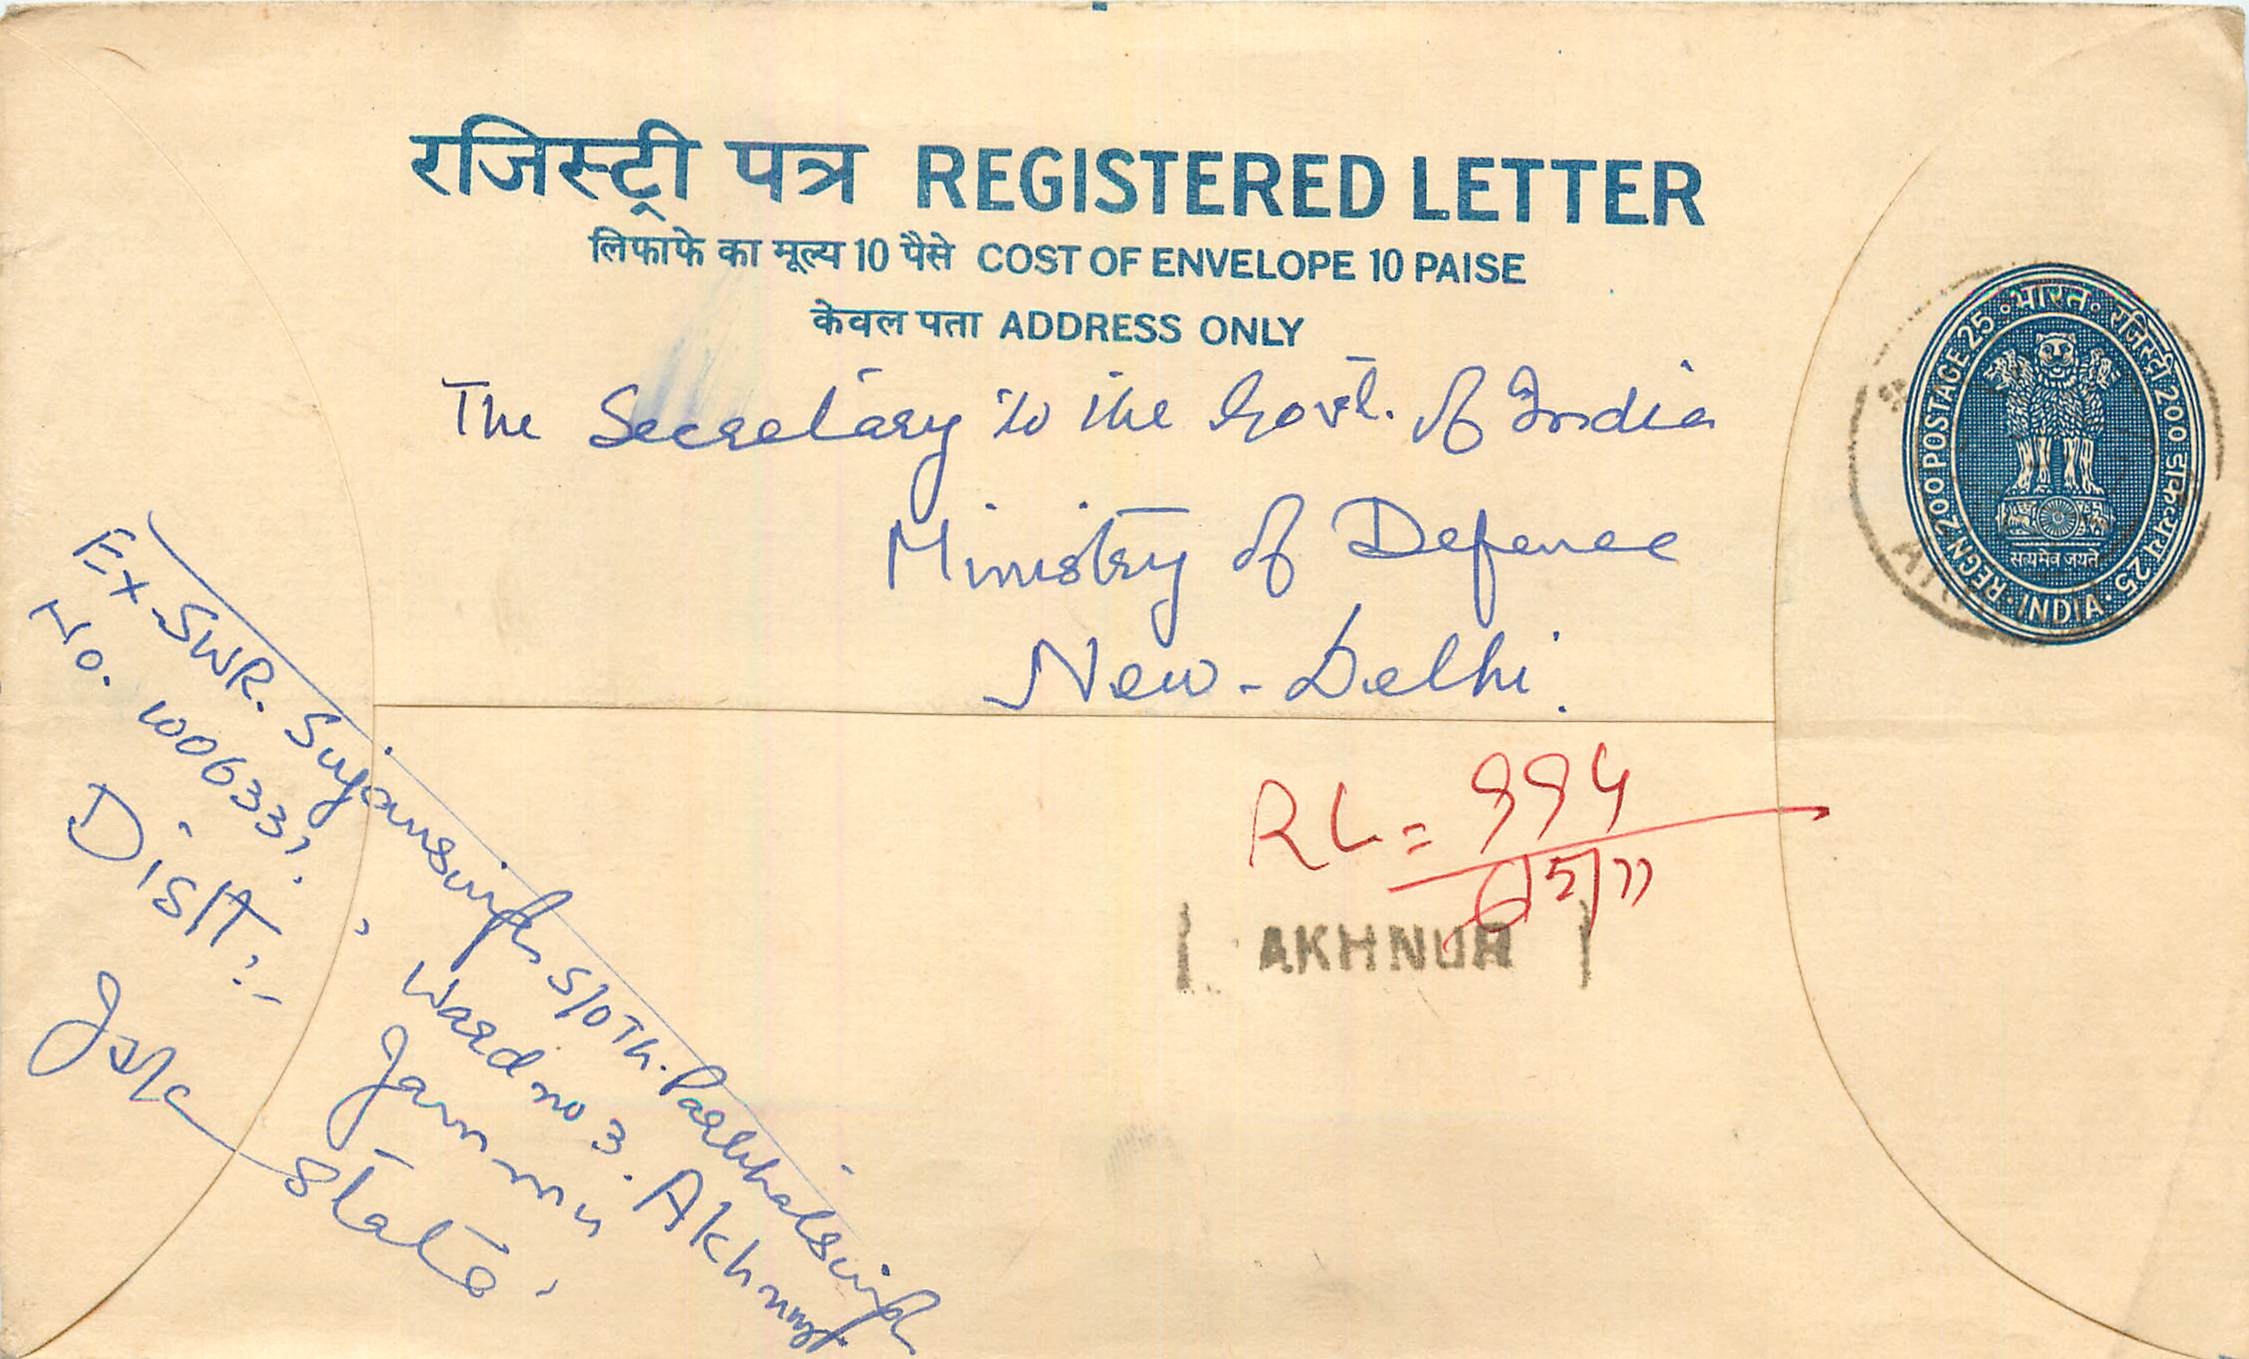 रजिस्ट्री पत्र REGISTERED LETTER
लिफाफे का मूल्य 10 पैसे COST OF ENVELOPE 10 PAISE
केवल पता ADDRESS ONLY
भारत रजिस्ट्री 200 डाकव्यय 25
REGN 200 POSTAGE 25
सत्यमेव जयते
INDIA
The Secretary to the Govt. of India
Ministry of Defence
New-Delhi.
RL = 994
5/77
AKHNUR
Ex-SWR. Sujansingh S/O Th.
No. 1006331, Ward no 3. Akhnoor
Distt:- Jammu
J&K State